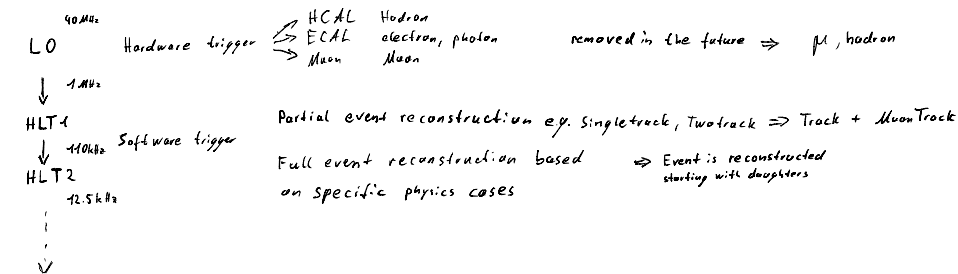 40MHz
L0 Hardware trigger
HCAL Hadron
ECAL electron, photon
Muon Muon
removed in the future ⇒ μ, hadron
1MHz
HLT1
Partial event reconstruction e.g. Singletrack, Twotrack ⇒ Track + MuonTrack
110kHz Software trigger
HLT2
Full event reconstruction based
on specific physics cases
⇒ Event is reconstructed
starting with daughters
12.5kHz